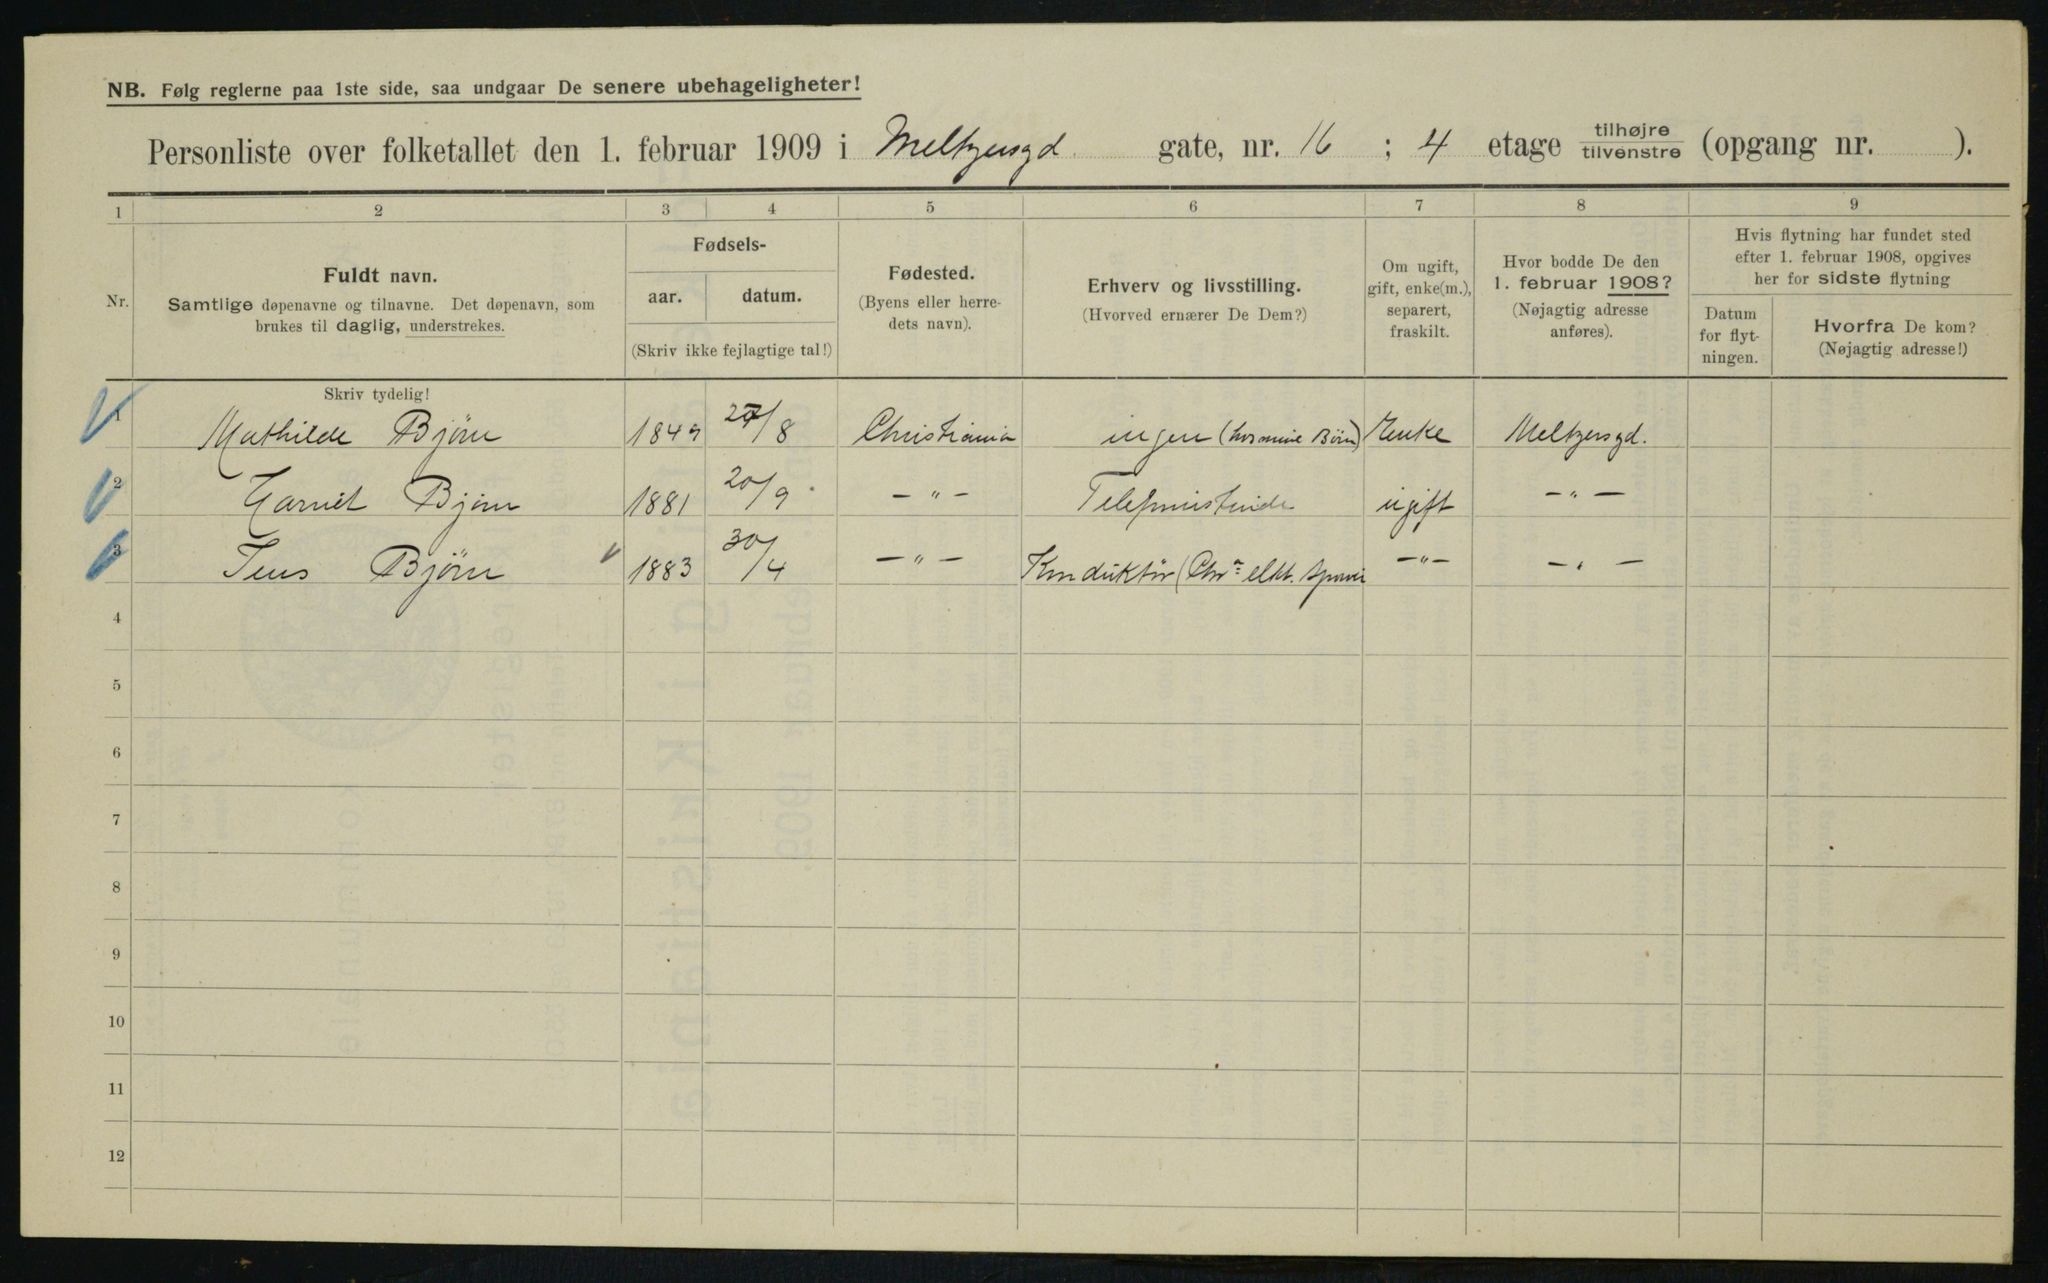 NB. Følg reglerne paa 1ste side, saa undgaar De senere ubehageligheter!
Personliste over folketallet den 1. februar 1909 i Meltzersgd. gate, nr. 16 ; 4 etage tilhøjre/tilvenstre (opgang nr. ).
1 2 3 4 5 6 7 8 9
Nr.
Fuldt navn.
Samtlige døpenavne og tilnavne. Det døpenavn, som
brukes til daglig, understrekes.
Fødsels-
aar. datum.
(Skriv ikke fejlagtige tal!)
Fødested.
(Byens eller herre-
dets navn).
Erhverv og livsstilling.
(Hvorved ernærer De Dem?)
Om ugift,
gift, enke(m.),
separert,
fraskilt.
Hvor bodde De den
1. februar 1908?
(Nøjagtig adresse
anføres).
Hvis flytning har fundet sted
efter 1. februar 1908, opgives
her for sidste flytning
Datum
for flyt-
ningen.
Hvorfra De kom?
(Nøjagtig adresse!)
Skriv tydelig!
1 Mathilde Bjørn 1849 27/8 Christiania ingen (hos mine Børn) Enke Meltzersgd.
2 Harriet Bjørn 1881 20/9 – " – Telefonistinde ugift – " –
3 Jens Bjørn 1883 30/4 – " – Konduktör (Chr.a elkt. Sporvei – " – – " –
4
5
6
7
8
9
10
11
12